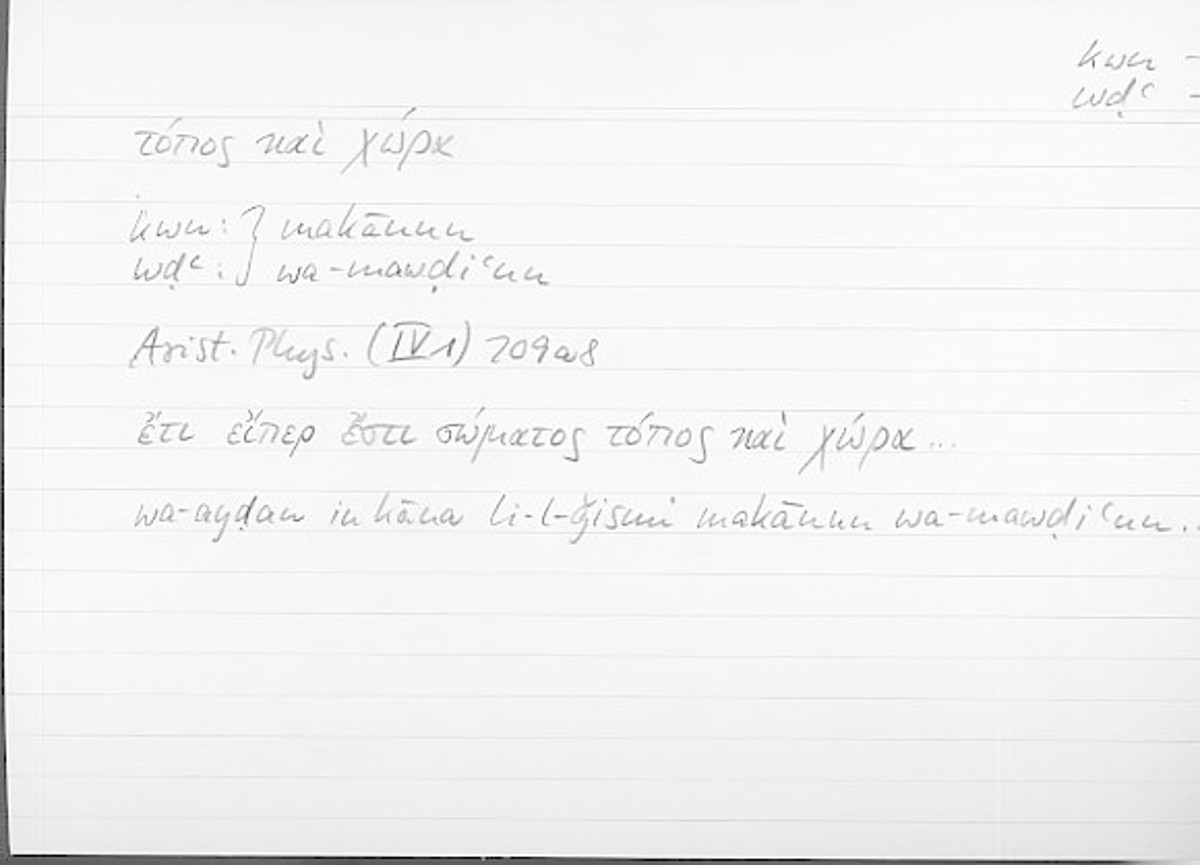 kwn –
wḍʿ –
τόπος καὶ χώρα
kwn: } makānun
wḍʿ: } wa-mawḍiʿun
Arist. Phys. (IV 1) 209a8
ἔτι εἴπερ ἔστι σώματος τόπος καὶ χώρα...
wa-ayḍan in kāna li-l-ǧismi makānun wa-mawḍiʿun.